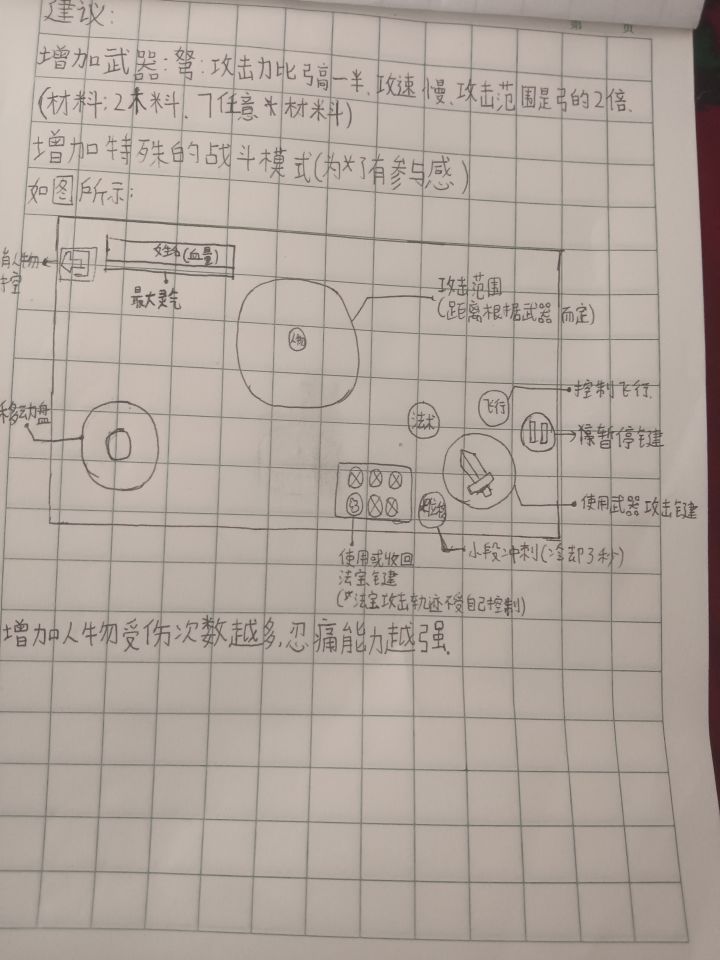 第 页
建议:
增加武器:弩:攻击力比弓高一半、攻速慢、攻击范围是弓的2倍.
(材料:2木料、7任意*材料)
增加特殊的战斗模式(为*了有参与感)
如图所示:
人物
姓名(血量)
最大灵气
攻击范围
(距离根据武器而定)
人物
移动盘
法术
飞行
控制飞行.
暂停键
使用武器攻击键
小段冲刺(冷却3秒)
使用或收回
法宝键
(*法宝攻击轨迹不受自己控制)
增加人物受伤次数越多,忍痛能力越强.